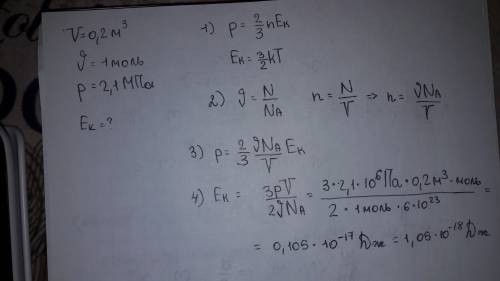 V=0,2м³
ϑ=1моль
p=2,1МПа
Eк=?
1) p=2/3 nEк
Eк=3/2 kT
2) ϑ=N/NA n=N/V ⇒ n=ϑNA/V
3) p=2/3 ϑNA/V Eк
4) Eк = 3pV/2ϑNA = 3·2,1·10⁶Па·0,2м³·моль/2·1моль·6·10²³ =
= 0,105·10⁻¹⁷Дж = 1,05·10⁻¹⁸Дж